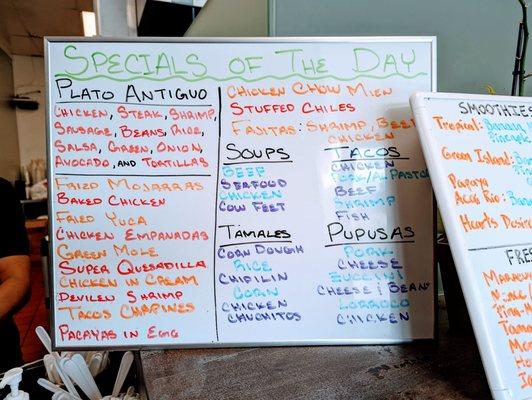 SPECIALS OF THE DAY
PLATO ANTIGUO
CHICKEN, STEAK, SHRIMP,
SAUSAGE, BEANS, RICE,
SALSA, GREEN, ONION,
AVOCADO, AND TORTILLAS
FRIED MOJARRAS
BAKED CHICKEN
FRIED YUCA
CHICKEN EMPANADAS
GREEN MOLE
SUPER QUESADILLA
CHICKEN IN CREAM
DEVILED SHRIMP
TACOS CHAPINES
PACAYAS IN EGG
CHICKEN CHOW MIEN
STUFFED CHILES
FAJITAS: SHRIMP, BEEF,
CHICKEN
SOUPS
BEEF
SEAFOOD
CHICKEN
COW FEET
TACOS
CHICKEN
AL PASTOR
BEEF
SHRIMP
FISH
TAMALES
CORN DOUGH
RICE
CHIPILIN
CORN
CHICKEN
CHUCHITOS
PUPUSAS
PORK
CHEESE
CHEESE & BEANS
LORROCO
CHICKEN
SMOOTHIES
Tropical: Banana
Pineapple
Green Island:
Papaya
Acas Rio: Ban
Hearts Des
FRES
Pina